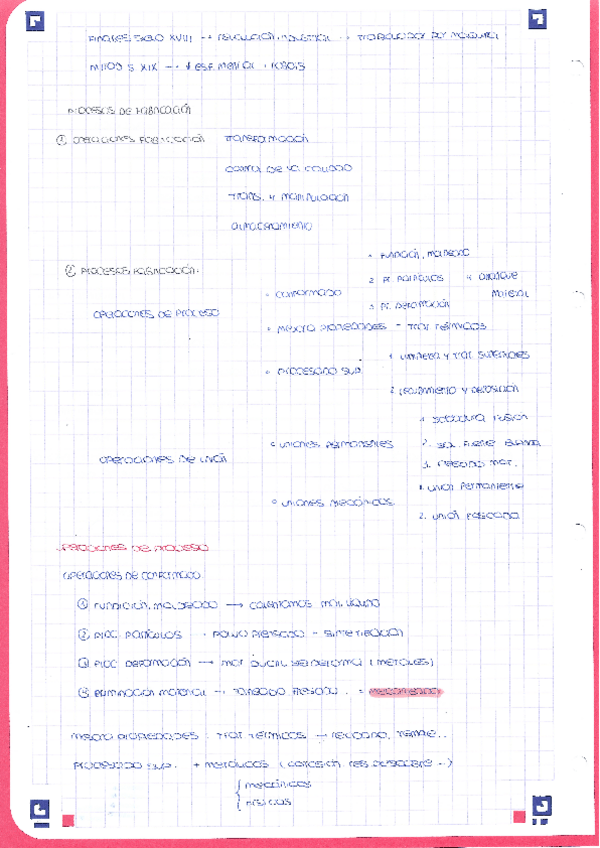 FINALES SIGLO XVIII → REVOLUCIÓN INDUSTRIAL → TRABAJADOR POR MÁQUINA
S XIX →
PROCESOS DE FABRICACIÓN
① OPERACIONES FABRICACIÓN TRANSFORMACIÓN
CONTROL DE LA CALIDAD
TRANS. Y MANIPULACIÓN
ALMACENAMIENTO
② PROCESOS FABRICACIÓN:
1. FUNDICIÓN, MOLDEADO
2. PR. PARTÍCULAS 4. ARRANQUE MATERIAL
• CONFORMADO
3. PR. DEFORMACIÓN
OPERACIONES DE PROCESO
• MEJORA PROPIEDADES - TRAT TÉRMICOS
1. LIMPIEZA Y TRAT. SUPERFICIES
• PROCESADO SUP.
2. RECUBRIMIENTO Y DEPOSICIÓN
1. SOLDADURA FUSIÓN
• UNIONES PERMANENTES 2. SOL. FUERTE BLANDA
OPERACIONES DE UNIÓN
3. PEGADO MAT.
1. UNIÓN PERMANENTE
• UNIONES MECÁNICAS
2. UNIÓN ROSCADA
OPERACIONES DE PROCESO
OPERACIONES DE CONFORMADO
① FUNDICIÓN, MOLDEADO → CALENTAMOS MAT. LÍQUIDO
② PROC PARTÍCULAS → POLVO PRENSADO - SINTERIZACIÓN
③ PROC DEFORMACIÓN → MAT DUCTIL SE DEFORMA (METALES)
④ ELIMINACIÓN MATERIAL → TORNEADO, FRESADO.. = MECANIZADO
MEJORA PROPIEDADES: TRAT TÉRMICOS → RECOCIDO, TEMPLE..
PROCESADO SUP. → METÁLICOS (CORROSIÓN, RES. DESGASTE..)
{ MECÁNICOS
FÍSICOS